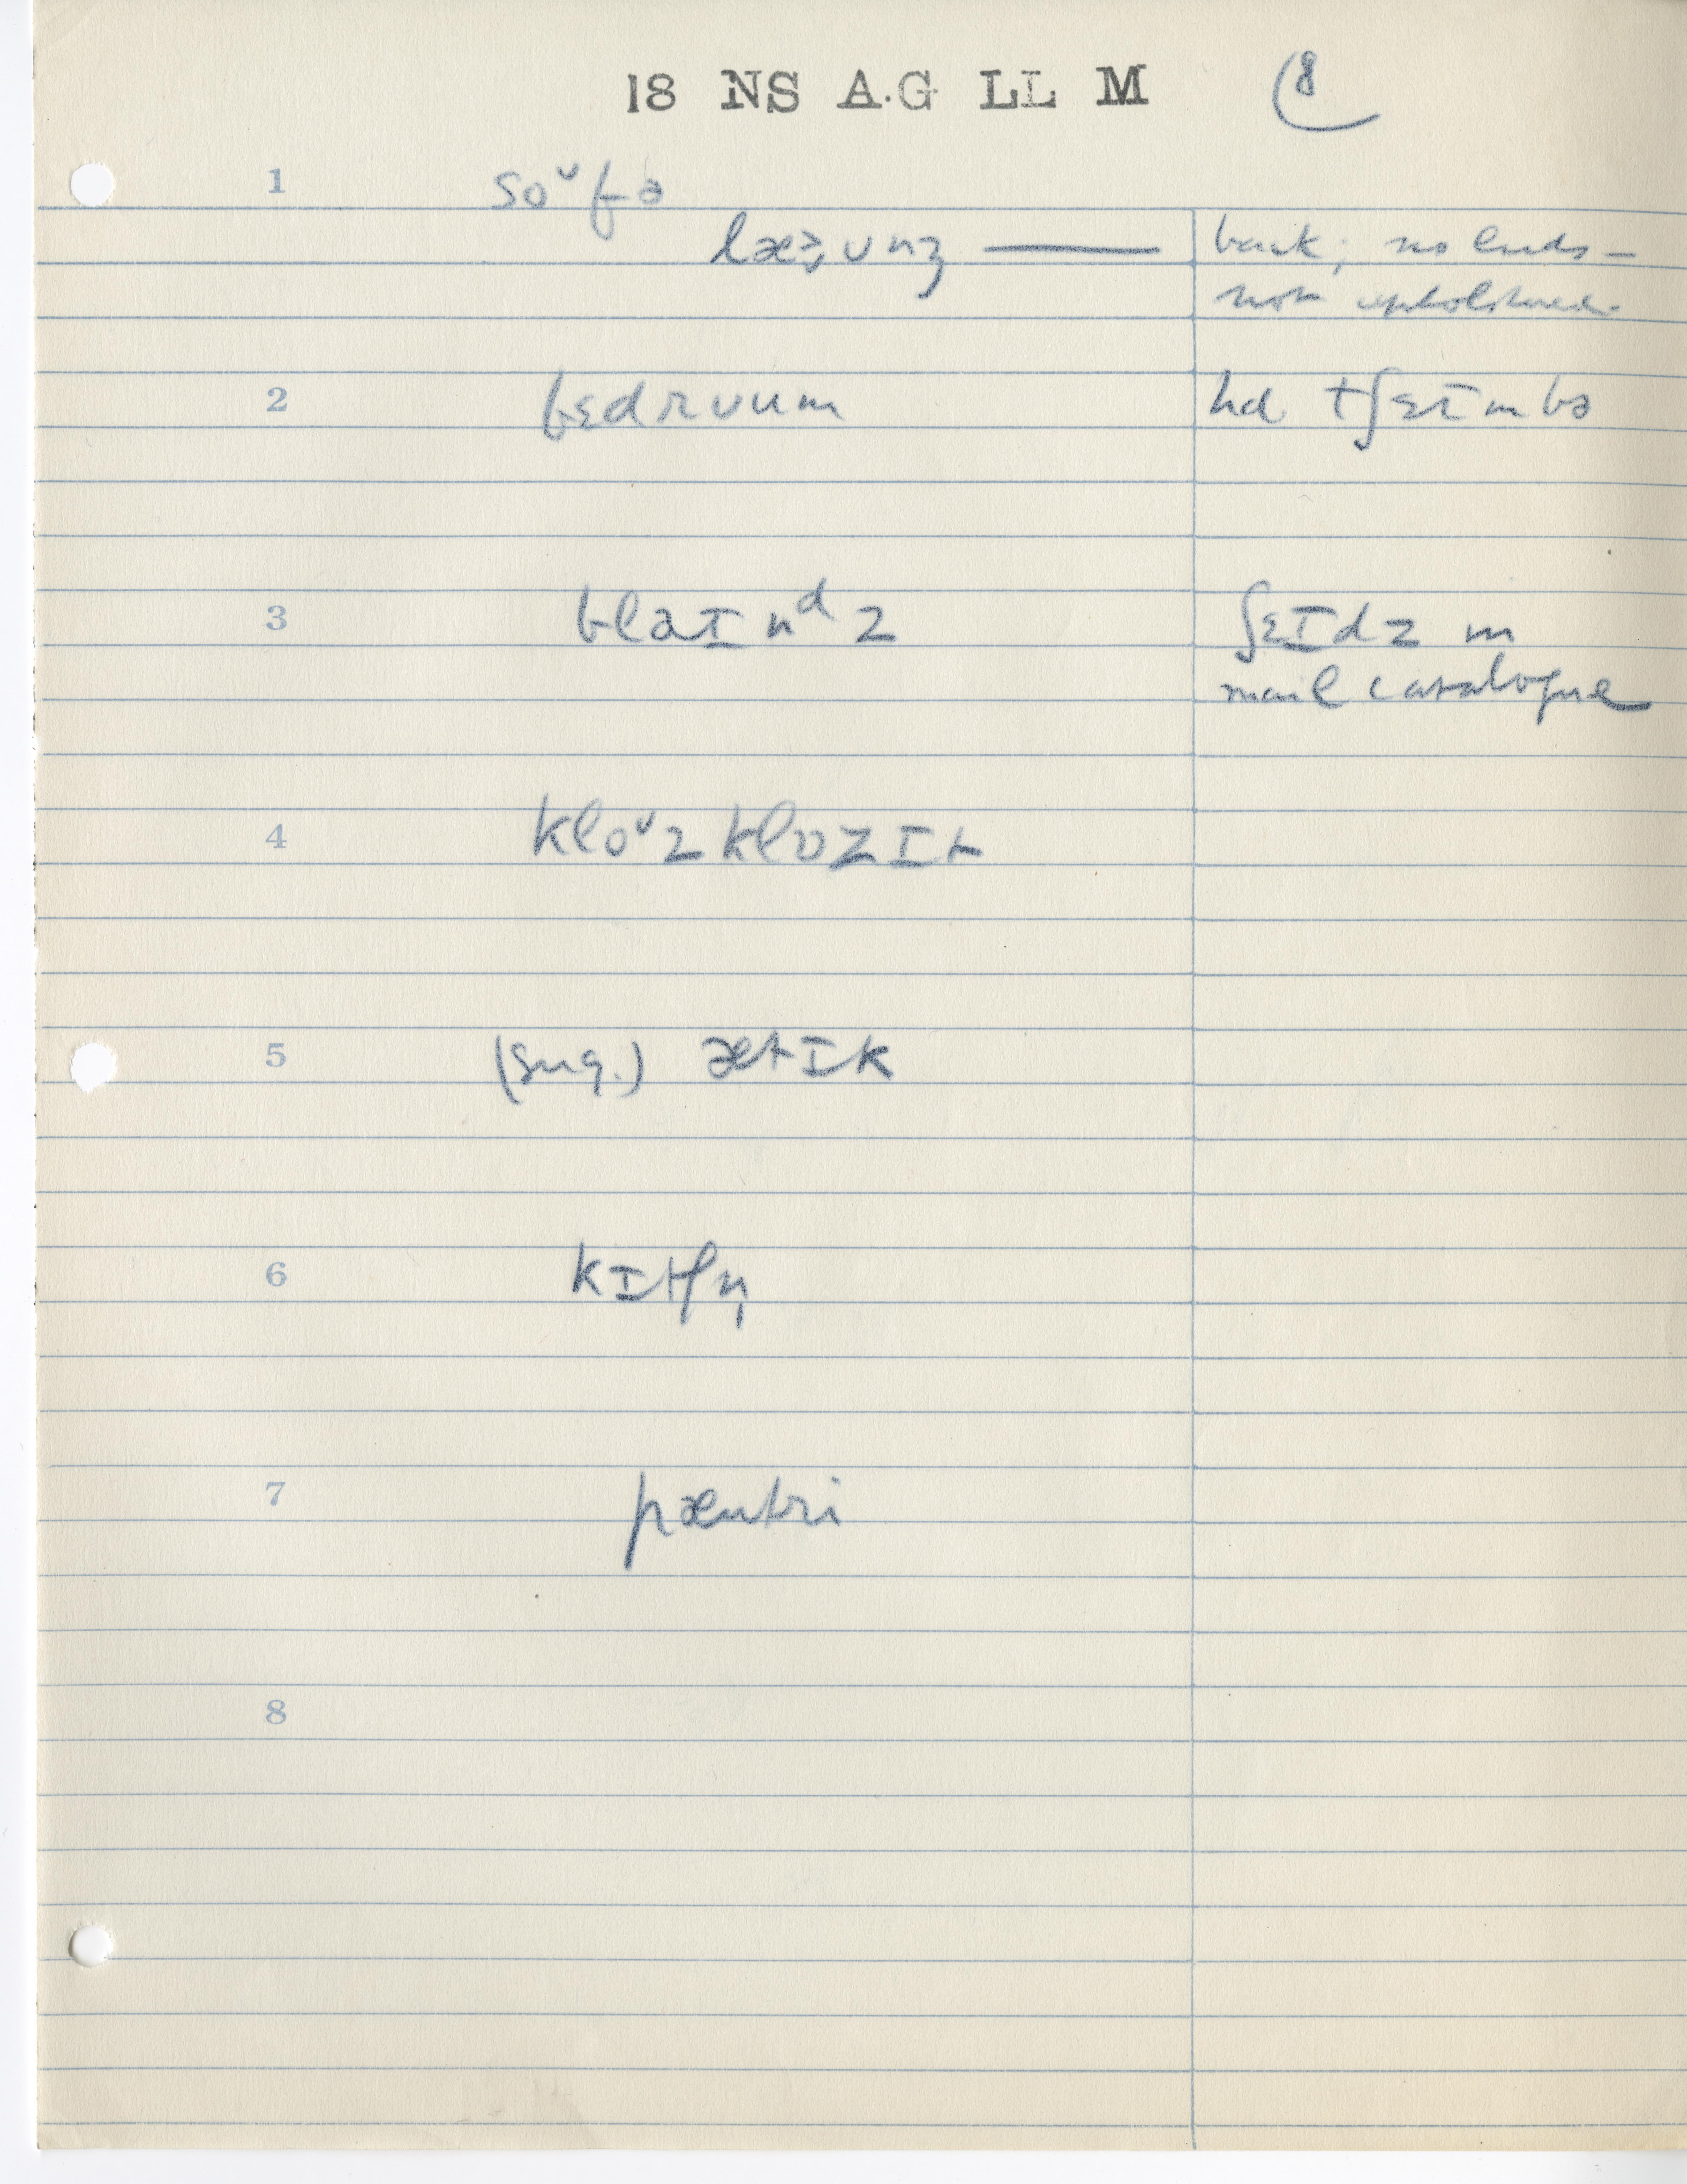 18 NS A.G LL M 8
1 soᶷfə
læ̠ʊnʒ — back; no ends –
not upholstered
2 bɛdrʊum hd tʃɛɪmbə
3 bləɪnᵈz ʃɛɪdz in
mail catalogue
4 kloᶷzklɒzɪt
5 (sug.) ætɪk
6 kɪtʃn̩
7 pæntri
8